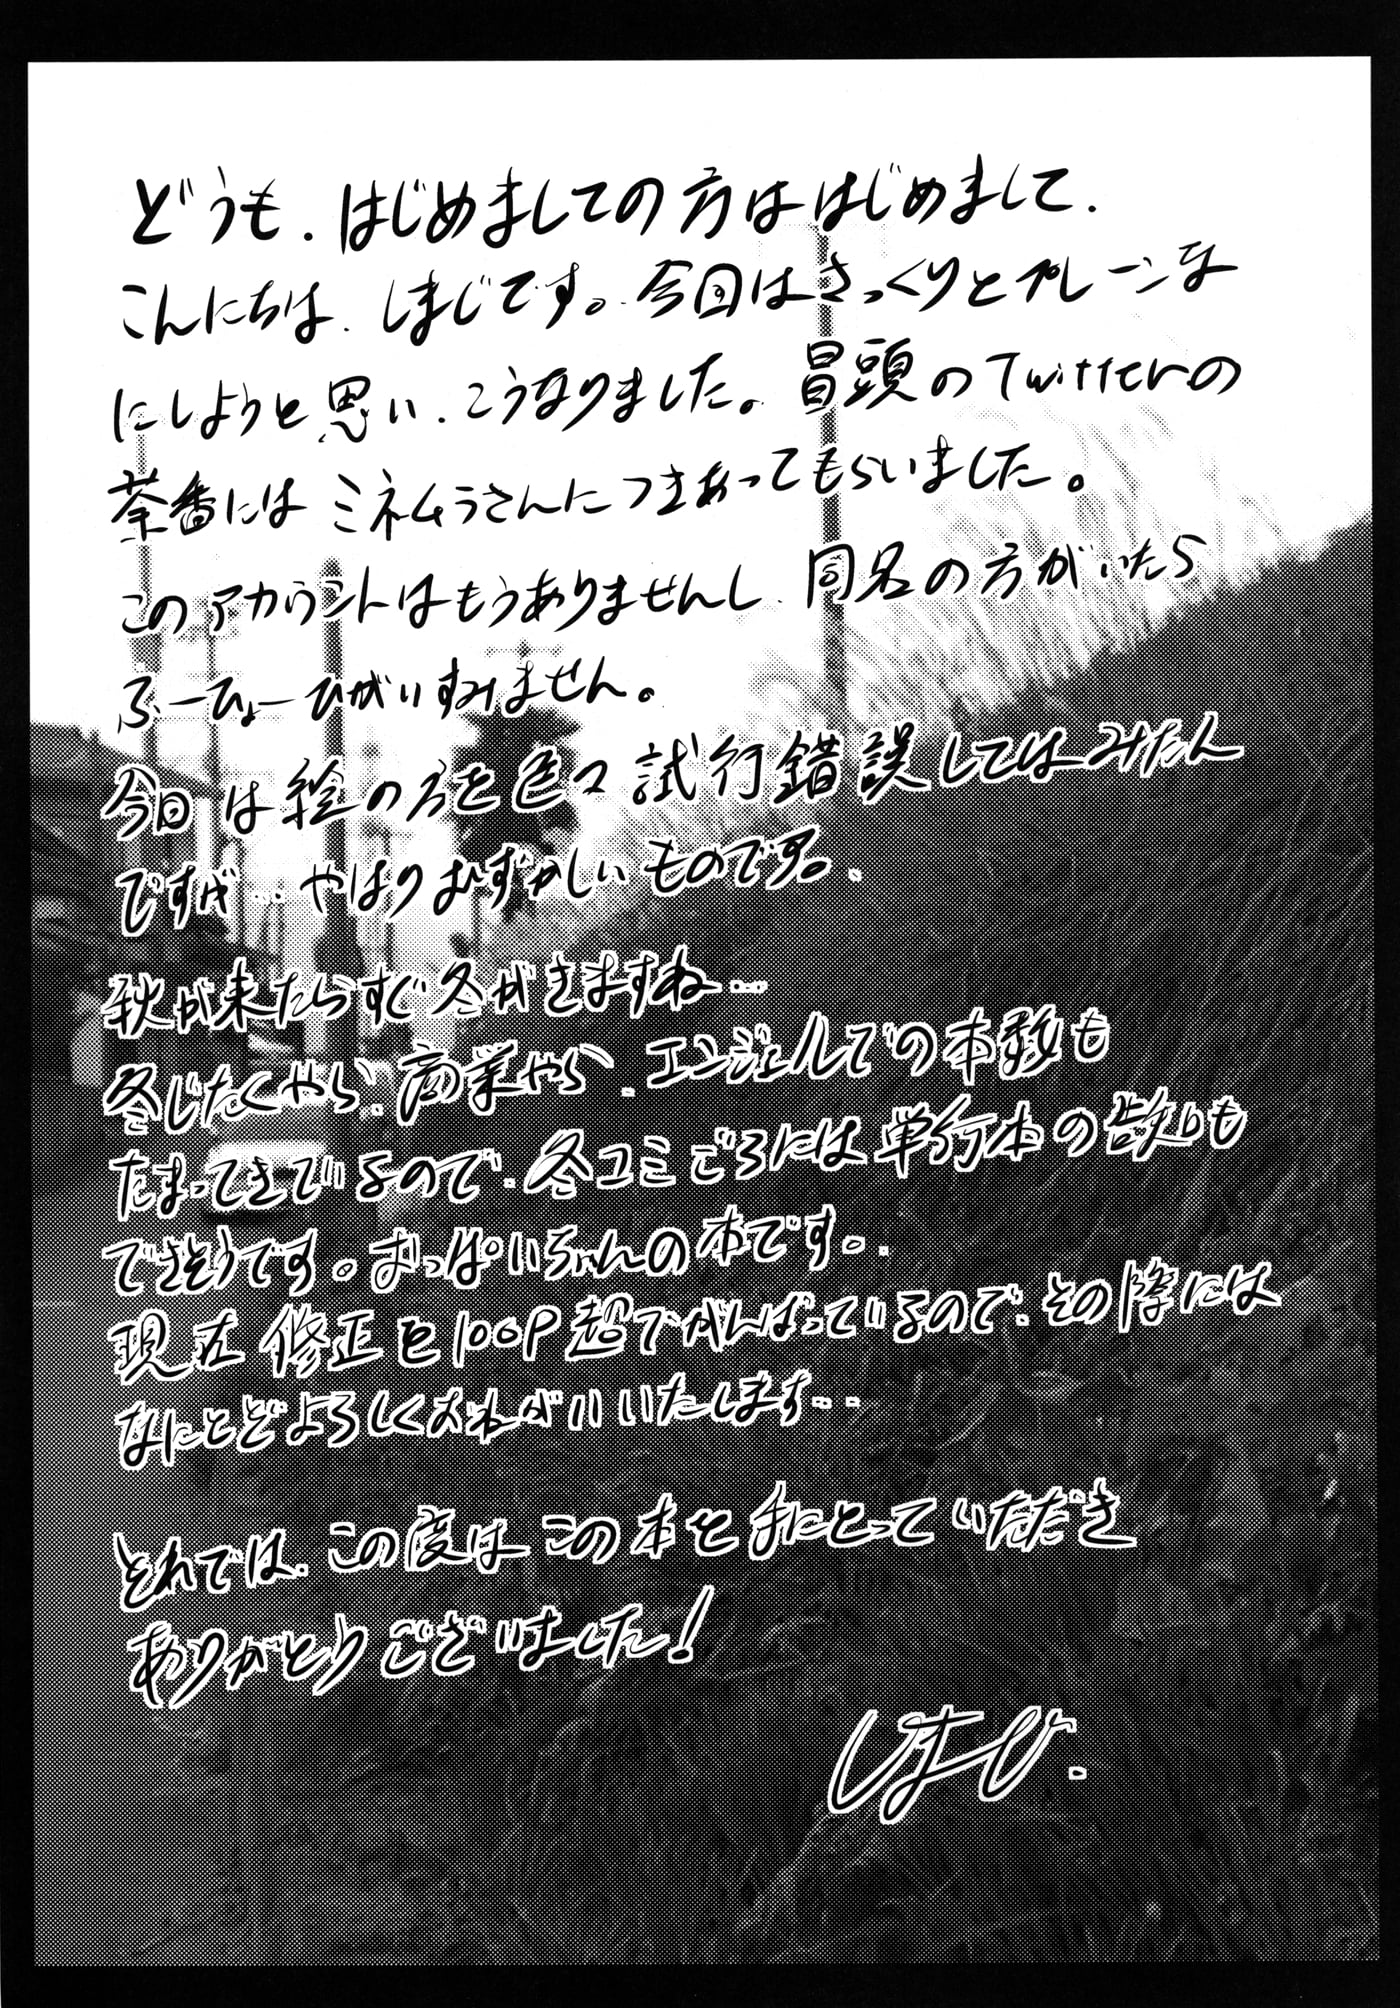 どうも、はじめましての方ははじめまして、
こんにちは、しまじです。今回はさっくりとプレーンな
にしようと思い、こうなりました。冒頭のTwitterの
茶番にはミネムラさんにつきあってもらいました。
このアカウントはもうありませんし、同名の方がいたら
ふーひょーひがいすみません。
今回は絵の方を色々試行錯誤してはみたん
ですが…やはりむずかしいものです。
秋が来たらすぐ冬がきますね…
冬じたくやら、商業やら、エンジェルでの本数も
たまってきているので、冬コミごろには単行本の告知も
できそうです。おっぱいちゃんの本です。
現在修正を100P超でがんばっているので、その際には
なにとぞよろしくおねがいいたします…
それでは、この度はこの本を手にとっていただき
ありがとうございました!
しまじ